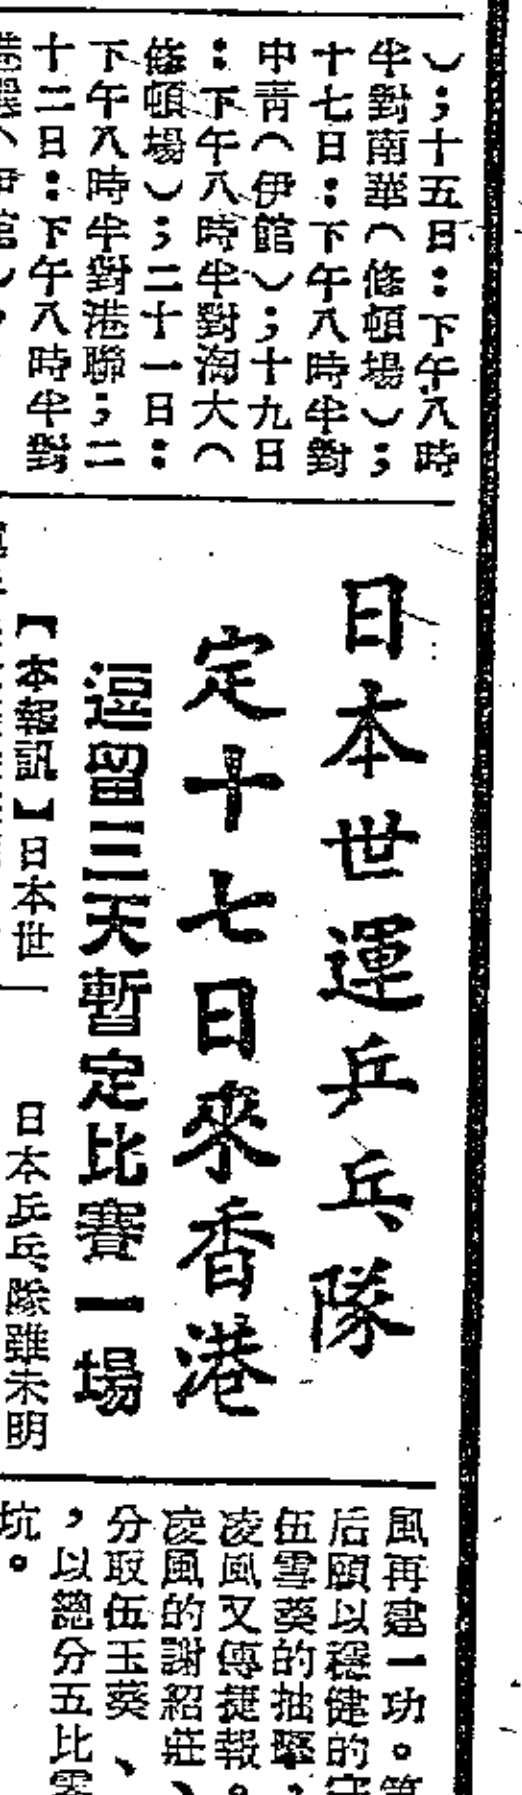 ）；十五日：下午八時
半對南華（修頓場）；
十七日：下午八時半對
中青（伊館）；十九日
：下午八時半對海大（
修頓場）；二十一日：
下午八時半對港聯；二
十二日：下午八時半對
日本世運乒乓隊
定十七日來香港
逗留三天暫定比賽一場
【本報訊】日本世
日本乒乓隊雖未明
風再建一功。第
后頤以穩健的守
伍雪葵的抽擊，
凌風又傳捷報。
凌風的謝紹莊、
分取伍玉葵、
，以總分五比零
坑。